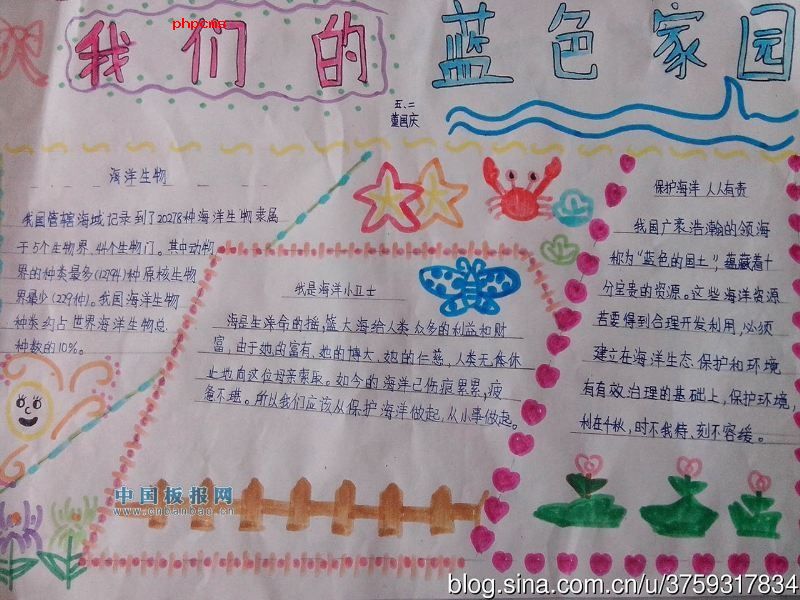 phpcms
我们的蓝色家园
五、二
董国庆
海洋生物
我国管辖海域记录到了20278种海洋生物隶属
于5个生物界、44个生物门。其中动物
界的种类最多(12794)种原核生物
界最少(229种)。我国海洋生物
种类约占世界海洋生物总
种数的10%。
我是海洋小卫士
海是生洋命的摇,篮大海给人类众多的利益和财
富,由于她的富有、她的博大、她的仁慈,人类无休休
止地向这位母亲索取。如今的海洋已伤痕累累,疲
惫不堪。所以我们应该从保护海洋做起,从小事做起。
保护海洋 人人有责
我国广袤浩瀚的领海
称为“蓝色的国土”,蕴藏着十
分宝贵的资源。这些海洋资源
若要得到合理开发利用,必须
建立在海洋生态、保护和环境
有有效治理的基础上,保护环境,
利在千秋,时不我待、刻不容缓。
中国板报网
www.cnbanbao.cn
blog.sina.com.cn/u/3759317834